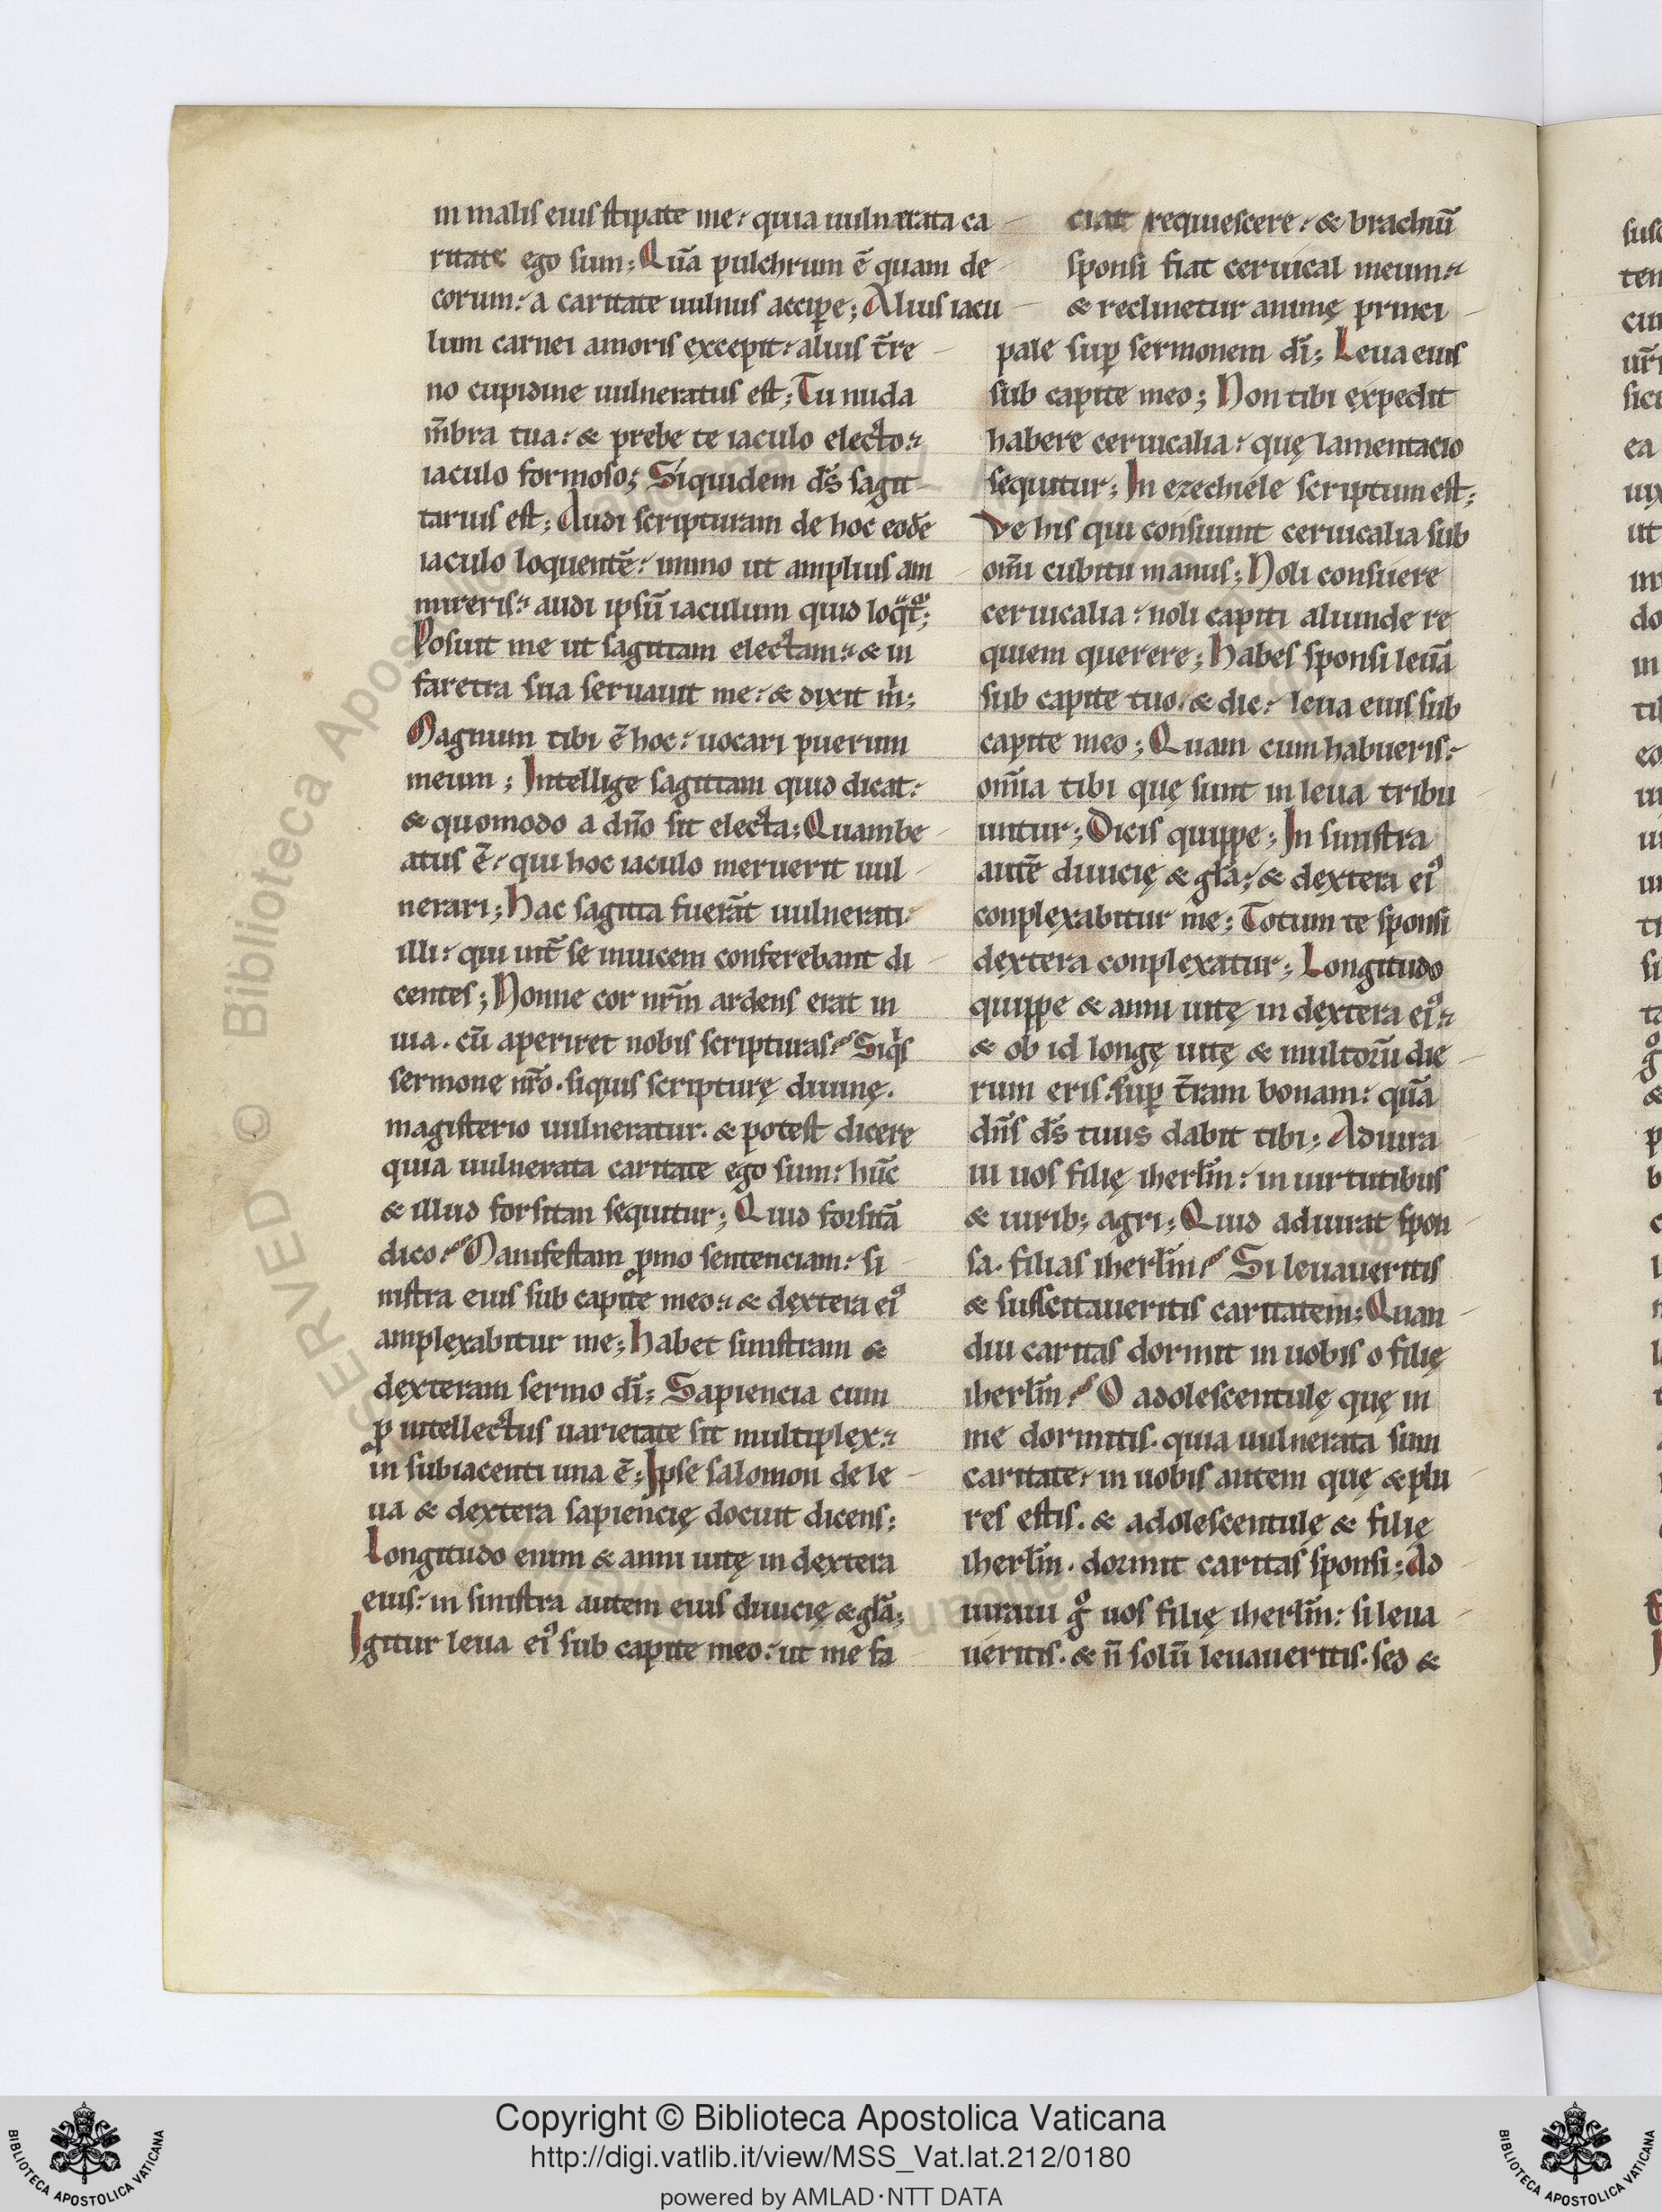 in malis eius stipate me: quia uulnerata ca
ritate ego sum; Quā pulchrum ē quam de
corum: a caritate uulnus accipe; Alius iacu
lum carnei amoris excepit: alius t̄re
no cupidine uulneratus est; Tu nuda
m̄bra tua: & prebe te iaculo electo:
iaculo formoso; Siquidem d̄s sagit
tarius est; Audi scripturam de hoc eodē
iaculo loquentē: immo ut amplius am
mireris: audi ipsū iaculum quid loqͥt᷑;
Posuit me ut sagittam electam: & in
faretra sua seruauit me: & dixit mͥ;
Magnum tibi ē hoc: uocari puerum
meum; Intellige sagittam quid dicat:
& quomodo a dn̄o sit electa; Quam be
atus ē: qui hoc iaculo meruerit uul
nerari; Hac sagitta fuerāt uulnerati
illi: qui int̄ se inuicem conferebant di
centes; Nonne cor nr̄m ardens erat in
uia. cū aperiret nobis scripturas? Siqͥs
sermone nr̄o. siquis scripturę diuinę.
magisterio uulneratur. & potest dicere
quia uulnerata caritate ego sum: hūc
& illud forsitan sequitur; Quid forsitā
dico? Manifestam ꝓmo sentenciam: si
nistra eius sub capite meo: & dextera eiꝰ
amplexabitur me; Habet sinistram &
dexteram sermo dī; Sapiencia cum
ꝓ intellectus uarietate sit multiplex:
in subiacenti una ē; Ipse salomon de le
ua & dextera sapiencię docuit dicens;
Longitudo enim & anni uitę in dextera
eius: in sinistra autem eius diuicię & gl̄a;
Igitur leua eiꝰ sub capite meo: ut me fa
ciat requiescere: & brachiū
sponsi fiat ceruical meum:
& reclinetur animę princi
pale suꝑ sermonem dī; Leua eius
sub capite meo; Non tibi expedit
habere ceruicalia: quę lamentacio
sequitur; In ezechiele scriptum est;
Ve his qui consuunt ceruicalia sub
om̄i cubitu manus; Noli consuere
ceruicalia: noli capiti aliunde re
quiem querere; Habes sponsi leuā
sub capite tuo: & dic: leua eius sub
capite meo; Quam cum habueris:
om̄ia tibi quę sunt in leua tribu
untur; Dicis quippe; In sinistra
autē diuicię & gl̄a: & dextera eiꝰ
conplexabitur me; Totum te sponsi
dextera conplexatur; Longitudo
quippe & anni uitę in dextera eiꝰ:
& ob id longę uitę & multorū die
rum eris. suꝑ t̄ram bonam: quā
dn̄s d̄s tuus dabit tibi; Adiura
ui uos filię iherl̄m: in uirtutibus
& uirib; agri; Quid adiurat spon
sa. filias iherl̄m? Si leuaueritis
& suscitaueritis caritatem; Quan
diu caritas dormit in uobis o filię
iherl̄m? O adolescentulę quę in
me dormitis. quia uulnerata sum
caritate: in uobis autem quę & plu
res estis. & adolescentulę & filię
iherl̄m. dormit caritas sponsi; Ad
iuraui gͦ uos filię iherl̄m: si leua
ueritis. & n̄ solū leuaueritis. sed &
Copyright © Biblioteca Apostolica Vaticana
http://digi.vatlib.it/view/MSS_Vat.lat.212/0180
powered by AMLAD·NTT DATA